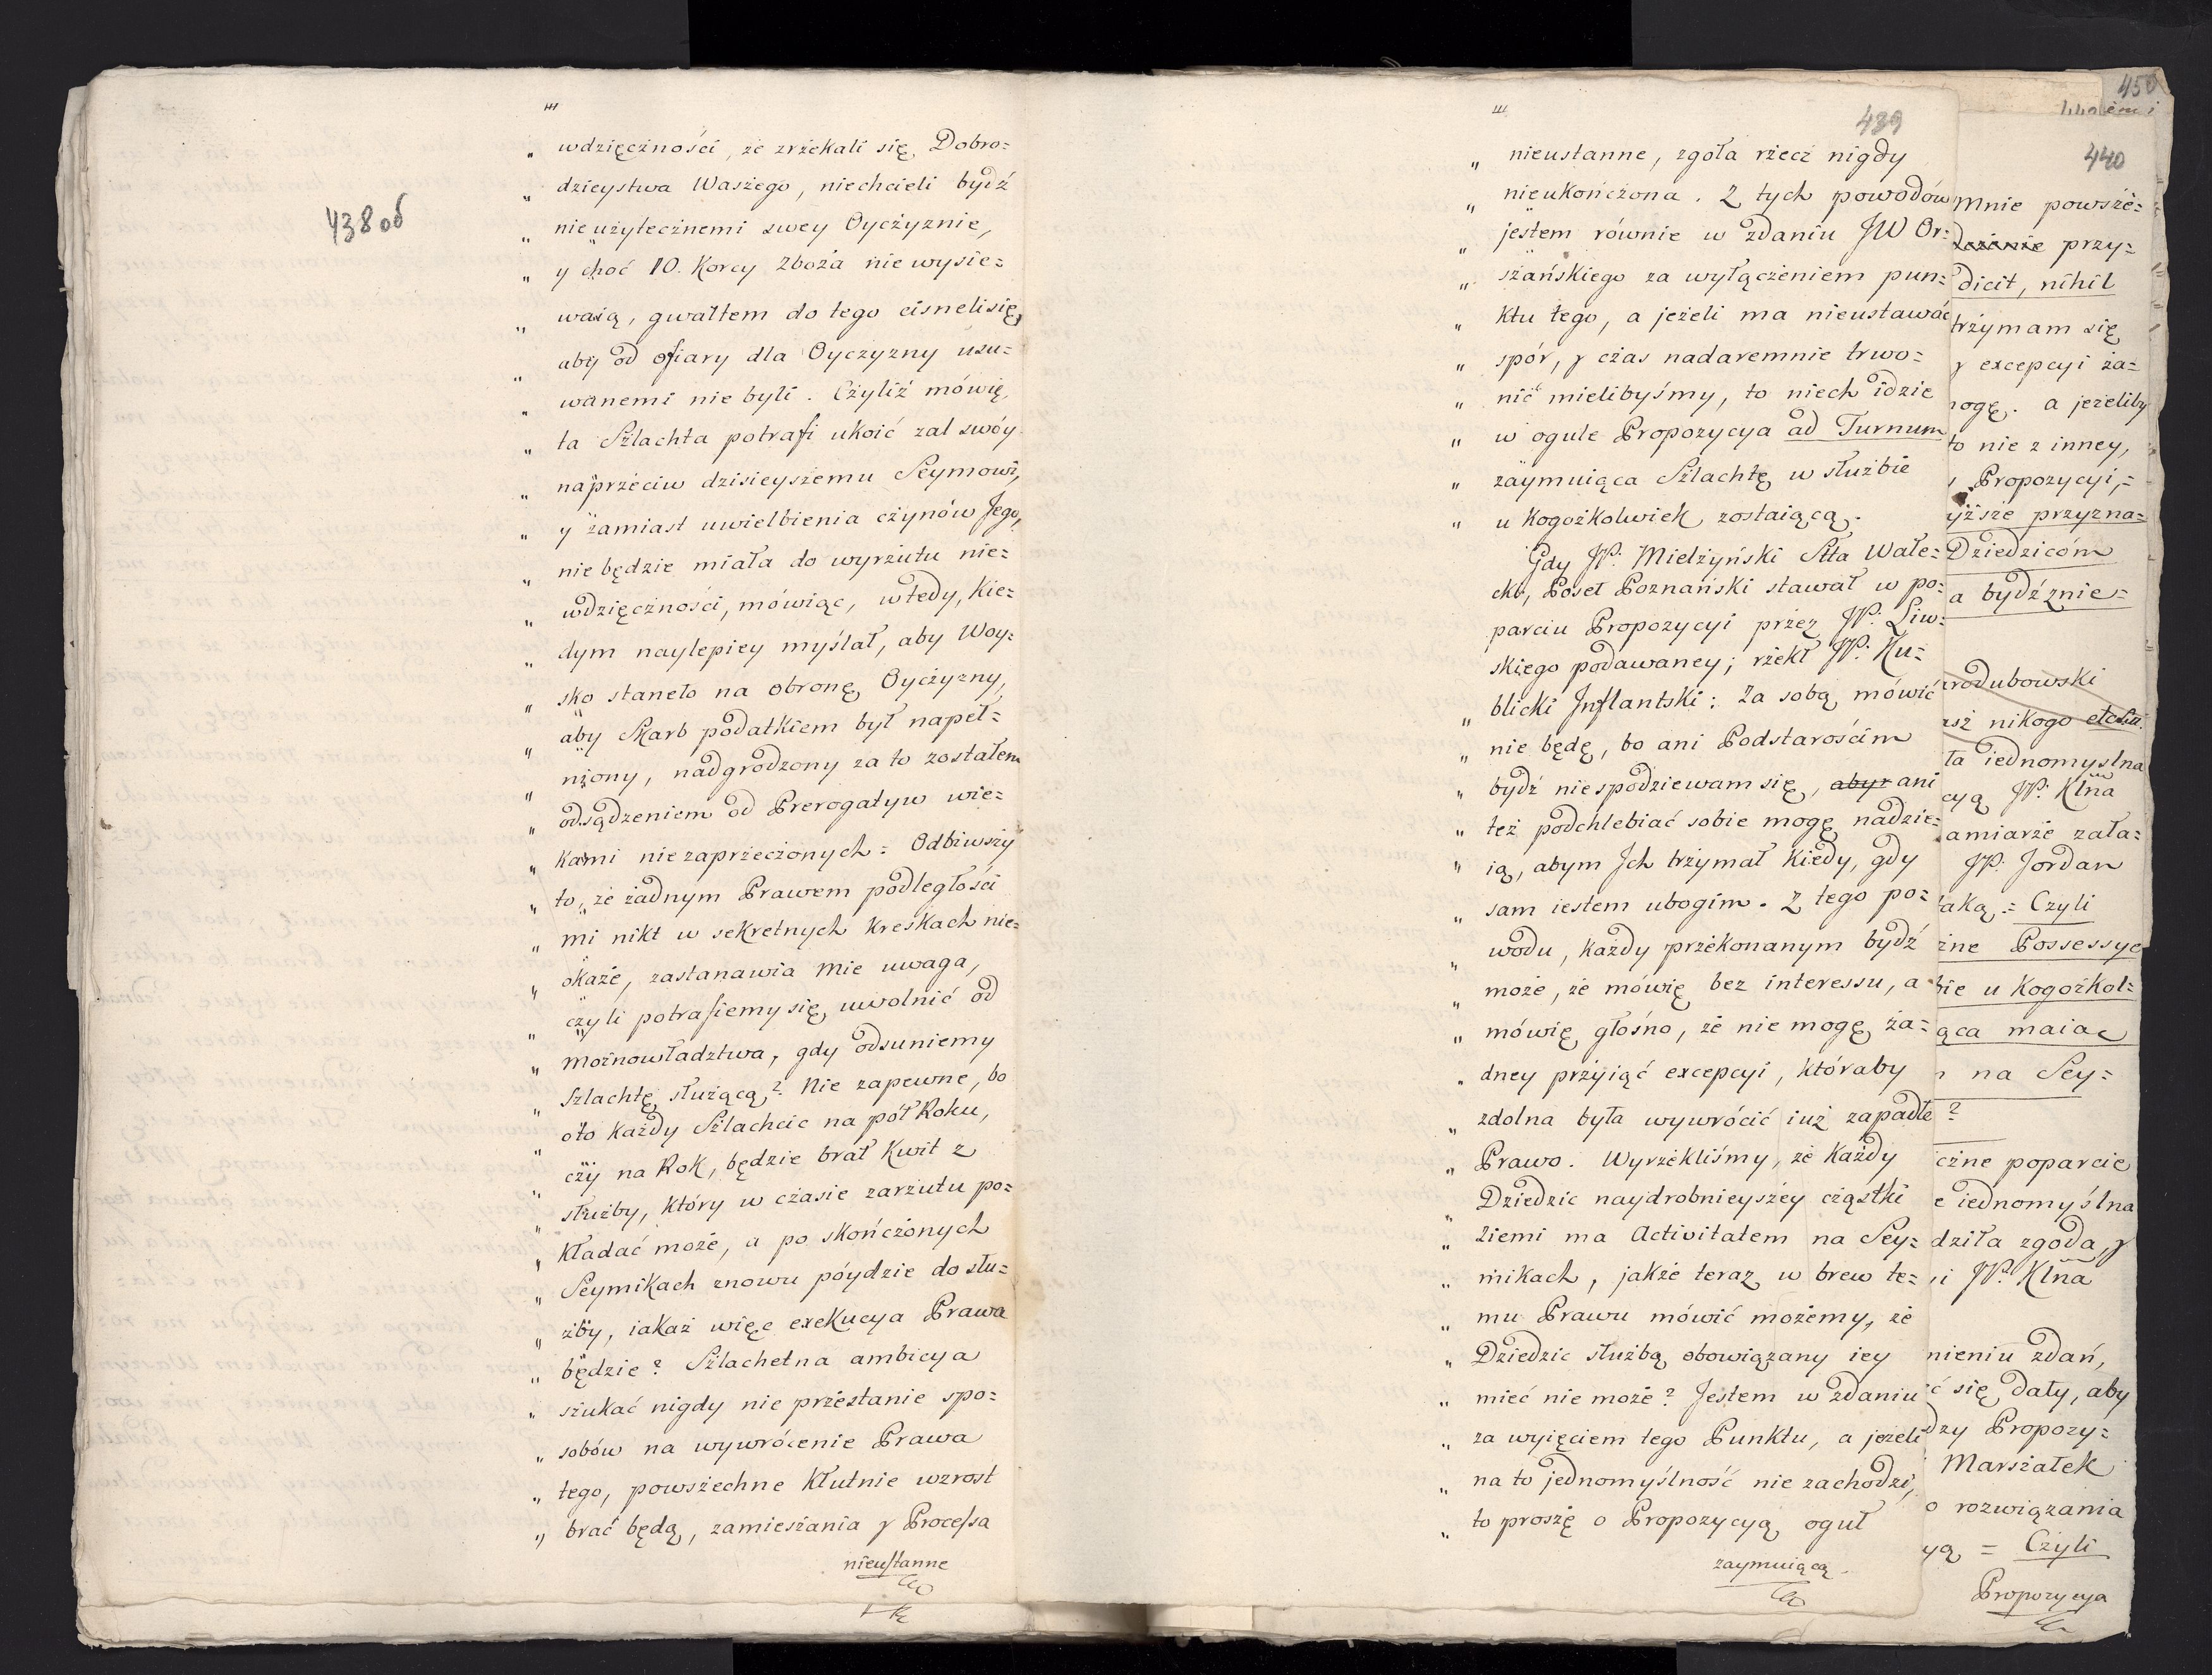 438 об
„ wdzięczności, że zrzekali się Dobro=
„ dzieystwa Waszego, niechcieli bydź
„ nieużytecznemi swey Oyczyznie,
„ y choć 10. Korcy Zboża nie wysie=
„ waią, gwałtem do tego cisneli się,
„ aby od ofiary dla Oyczyzny usu=
„ wanemi nie byli. Czyliż mówię,
„ ta Szlachta potrafi ukoić zal swóy
„ naprzeciw dzisieyszemu Seymowi,
„ y zamiast uwielbienia czynów Jego,
„ nie będzie miała do wyrzutu nie=
„ wdzięczności, mówiąc, wtedy, Kie=
„ dym naylepiey myślał, aby Woy=
„ sko staneło na obronę Oyczyzny,
„ aby Skarb podatkiem był napeł=
„ niony, nadgrodzony za to zostałem
„ odsądzeniem od Prerogatyw wie=
„ kami niezaprzeczonych = Odbiwszy
„ to, że żadnym Prawem podległości
„ mi nikt w sekretnych kreskach nie=
„ okaże, zastanawia mie uwaga,
„ czyli potrafiemy się uwolnić od
„ możnowładztwa, gdy odsuniemy
„ Szlachtę służącą? Nie zapewne, bo
„ oto każdy Szlachcic na pół Roku,
„ czy na Rok, będzie brał Kwit z
„ służby, który w czasie zarzutu po=
„ kładać może, a po skończonych
„ Seymikach znowu póydzie do słu=
„ żby, iakaż więc exekucya Prawa
„ będzie? Szlachetna ambicya
„ szukać nigdy nie przestanie spo=
„ sobów na wywrócenie Prawa
„ tego, powszechne Kłutnie wzrost
„ brać będą, zamieszania y Processa
nieustanne
439
„ nieustanne, zgoła rzecz nigdy
„ nieukończona. Z tych powodów
„ jestem równie w zdaniu JW Or=
„ szańskiego za wyłączeniem pun=
„ ktu tego, a jeżeli ma nieustawać
„ spór, y czas nadaremnie trwo=
„ nić mielibyśmy, to niech idzie
„ w ogule Propozycya ad Turnum
„ zaymuiąca Szlachtę w służbie
„ u kogożkolwiek zostaiącą.
Gdy JP: Mielżyński Stta Wałe=
cki, Poseł Poznański stawał w po=
parciu Propozycyi przez JP: Liw=
skiego podawaney; rzekł JP: Ku=
blicki Inflantski: Za sobą mówić
„ nie będę, bo ani Podstarościm
„ bydź niespodziewam się, abyr ani
„ też podchlebiać sobie mogę nadzie=
„ ią, abym Ich trzymał kiedy, gdy
„ sam iestem ubogim. Z tego po=
„ wodu, każdy przekonanym bydź
„ może, że mówię bez interessu, a
„ mówię głośno, że nie mogę ża=
„ dney przyiąć excepcyi, któraby
„ zdolna była wywrócić iuż zapadłe
„ Prawo. Wyrzekliśmy, że każdy
„ Dziedzic naydrobnieyszey cząstki
„ Ziemi ma Activitatem na Sey=
„ mikach, jakże teraz w brew te=
„ mu Prawu mówić możemy, że
„ Dziedzic służbą obowiązany iey
„ mieć nie może? Jestem w zdaniu
„ za wyięciem tego Punktu, a jeżeli
„ na to jednomyślność nie zachodzi,
„ to proszę o Propozycyą oguł
zaymuiącą.
450
440
Mnie powsze=
przy=
dicit, nihil
trzymam się
y excepcyi ża=
mogę. a jeżeliby
to nie z inney,
Propozycyi,=
yższe przyzna=
Dziedzicóm
a bydź znie=
rodubowski
asz nikogo
ła iednomyslna
cyą JP: Klna
amiarze zała=
JP. Jordan
taką = Czyli
żne Possessye
bie u Kogożkol=
ąca maiąc
na Sey=
?
czne poparcie
e iednomyślna
dziła zgoda, y
i JP: Klna
nieniu zdań,
ć się dały, aby
dzy Propozy=
Marszałek
o rozwiązania
yą = Czyli
Propozycya